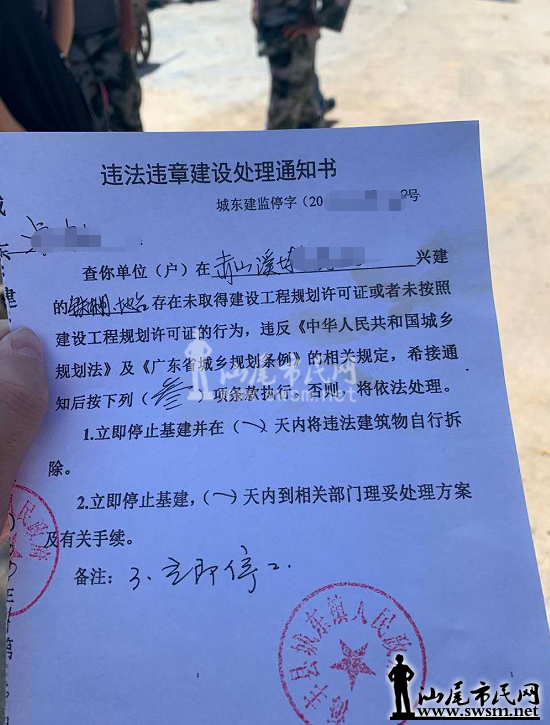 违法违章建设处理通知书
城东建监停字（20 号
查你单位（户）在赤山溪 兴建
的铁棚、地台存在未取得建设工程规划许可证或者未按照
建设工程规划许可证的行为，违反《中华人民共和国城乡
规划法》及《广东省城乡规划条例》的相关规定，希接通
知后按下列（叁）项条款执行。否则，将依法处理。
1.立即停止基建并在（一）天内将违法建筑物自行拆
除。
2.立即停止基建，（一）天内到相关部门理妥处理方案
及有关手续。
备注：3、立即停工.
丰县城东镇人民政
民政府
汕尾市民网
汕尾市民网
www.swsm.net